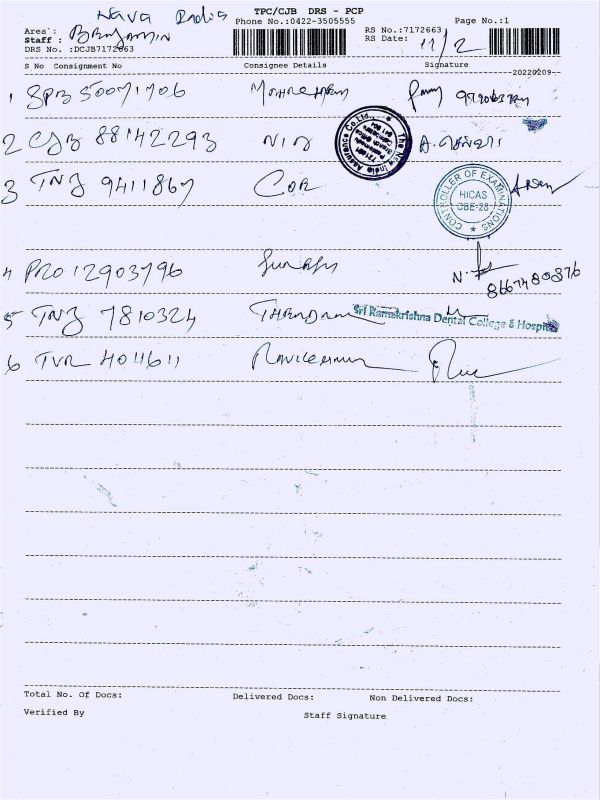 Nava India
TPC/CJB DRS - PCP
Phone No.:0422-3505555
Page No.:1
Area :
Staff : BENJAMIN
DRS No. :DCJB7172663
RS No.:7172663
RS Date: 11/2
S No Consignment No Consignee Details Signature
20220209
1 SPB 50071706
2 CJB 88142293 NIA
The New India Assurance Co.Ltd.
3 TNJ 9411867 COE
CONTROLLER OF EXAMINATIONS
HICAS
COE-28
4 PRO 12903796
N.
8667480876
5 TNJ 7810324
Sri Ramakrishna Dental College & Hospital
6 TVR 4011611 Ravikumar
Total No. Of Docs: Delivered Docs: Non Delivered Docs:
Verified By Staff Signature